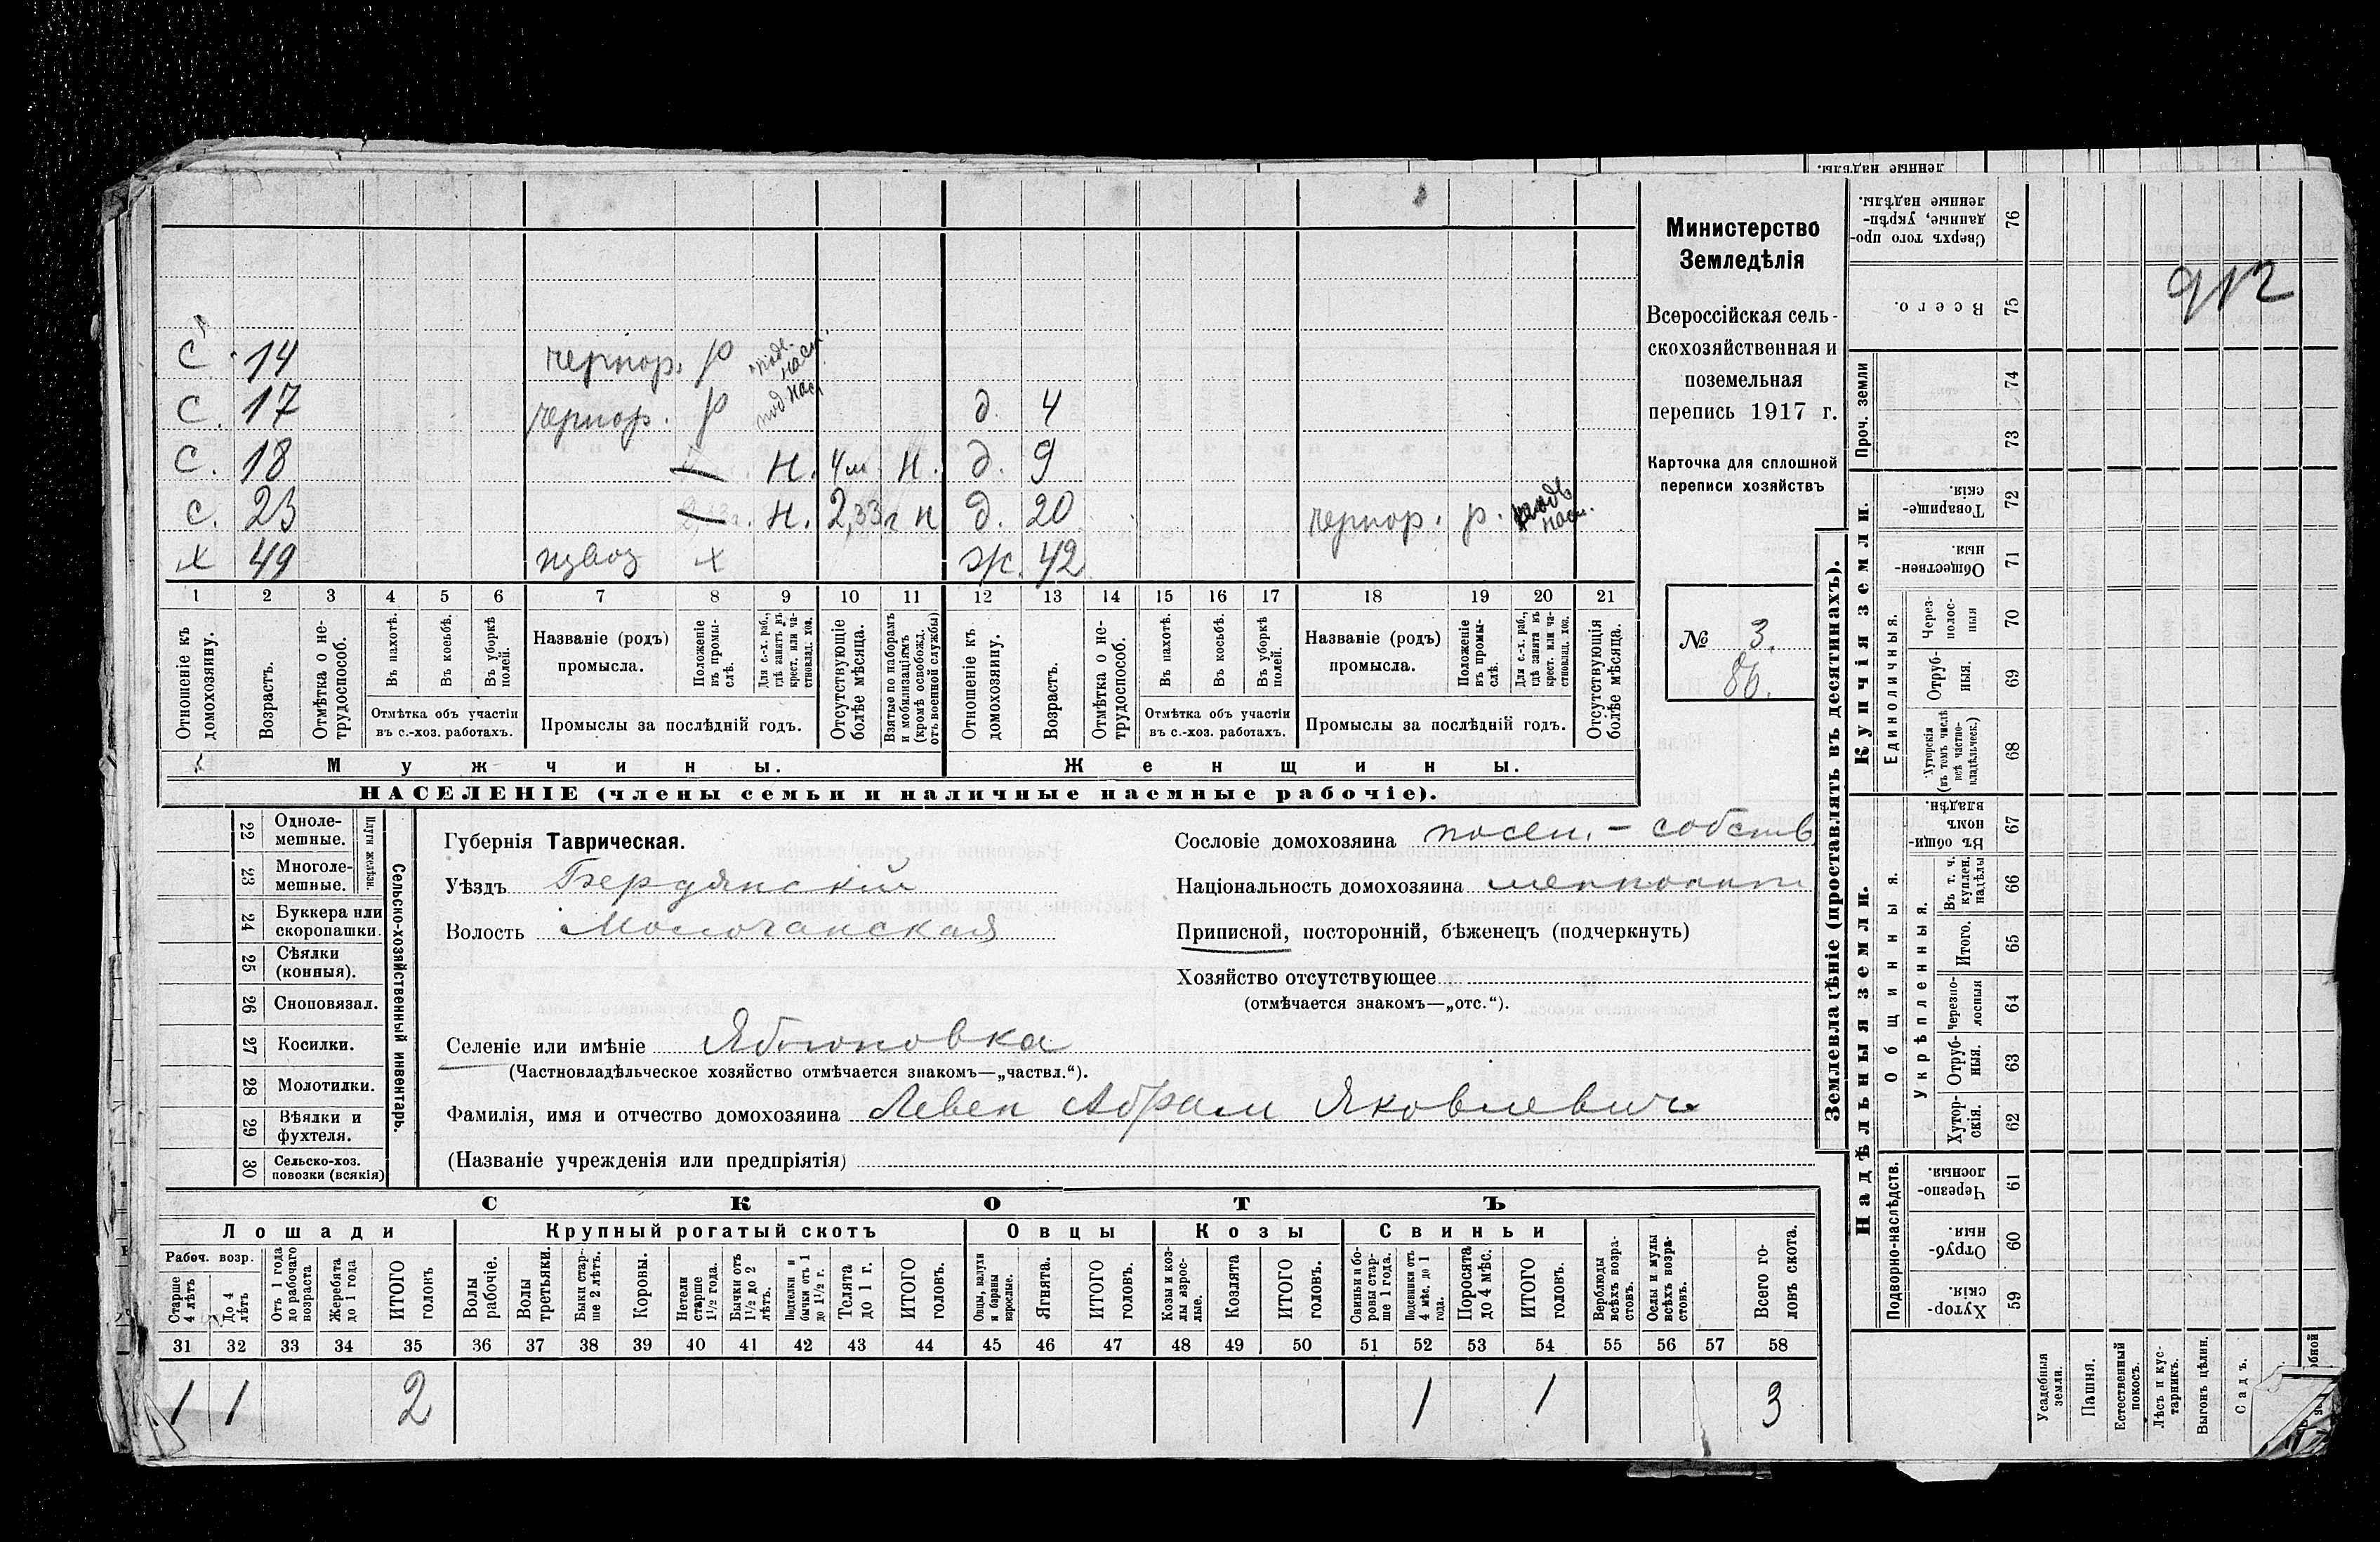 ленные надѣлы.
С 14 чернор. р
С. 17 чернор. р под нас д. 4
С. 18 Н. 4 м. Н. д. 9
С. 23 Н. 2,33 г Н д. 20 чернор. р. нас.
х 49 извоз х ж. 42
1 2 3 4 5 6 7 8 9 10 11 12 13 14 15 16 17 18 19 20 21
Отношеніе къ домохозяину.
Возрастъ.
Отмѣтка о не-трудоспособ.
Въ пахотѣ.
Въ косьбѣ.
Въ уборкѣ полей.
Отмѣтка объ участіи въ с.-хоз. работахъ.
Названіе (родъ) промысла.
Положеніе въ промы-слѣ.
Для с.-х. раб., гдѣ занятъ въ крест. или ча-стновлад. хоз.
Промыслы за послѣдній годъ.
Отсутствующіе болѣе мѣсяца.
Взятые по наборамъ и мобилизаціямъ (кромѣ освобожд. отъ военной службы)
Отношеніе къ домохозяину.
Возрастъ.
Отмѣтка о не-трудоспособ.
Въ пахотѣ.
Въ косьбѣ.
Въ уборкѣ полей.
Отмѣтка объ участіи въ с.-хоз. работахъ.
Названіе (родъ) промысла.
Положеніе въ промы-слѣ.
Для с.-х. раб., гдѣ занятъ въ крест. или ча-стновлад. хоз.
Промыслы за послѣдній годъ.
Отсутствующія болѣе мѣсяца.
Мужчины.
Женщины.
НАСЕЛЕНІЕ (члены семьи и наличные наемные рабочіе).
Министерство
Земледѣлія
Всероссійская сель-
скохозяйственная и
поземельная
перепись 1917 г.
Карточка для сплошной
переписи хозяйствъ
№ 3.
86.
22 Одноле-мешные.
23 Многоле-мешные.
Плуги желѣзн.
24 Буккера или скоропашки.
25 Сѣялки (конныя).
26 Сноповязал.
27 Косилки.
28 Молотилки.
29 Вѣялки и фухтеля.
30 Сельско-хоз. повозки (всякія)
Сельско-хозяйственный инвентарь.
Губернія Таврическая.
Уѣздъ Бердянскій
Волость Молочанская
Сословіе домохозяина посел. - собств
Національность домохозяина меннонит
Приписной, посторонній, бѣженецъ (подчеркнуть)
Хозяйство отсутствующее
(отмѣчается знакомъ—„отс.“).
Селеніе или имѣніе Яблоновка
(Частновладѣльческое хозяйство отмѣчается знакомъ—„частвл.“).
Фамилія, имя и отчество домохозяина Левен Абрам Яковлевич
(Названіе учрежденія или предпріятія)
СКОТЪ
Лошади
Крупный рогатый скотъ
Овцы
Козы
Свиньи
Рабоч. возр.
Старше 4 лѣтъ
До 4 лѣтъ
Отъ 1 года до рабочаго возраста
Жеребята до 1 года
ИТОГО головъ
Волы рабочіе.
Волы третьяки.
Быки стар-ше 2 лѣтъ.
Коровы.
Нетели старше 1½ года.
Бычки отъ 1½ до 2 лѣтъ.
Подтелки и бычки отъ 1 до 1½ г.
Телята до 1 г.
ИТОГО головъ.
Овцы, валухи и бараны взрослые.
Ягнята.
ИТОГО головъ.
Козы и коз-лы взрос-лые.
Козлята
ИТОГО головъ.
Свиньи и бо-ровы стар-ше 1 года.
Подсвинки отъ 4 мѣс. до 1 года.
Поросята до 4 мѣс.
ИТОГО головъ.
Верблюды всѣхъ возра-стовъ.
Ослы и мулы всѣхъ возра-стовъ.
Всего го-ловъ скота.
31 32 33 34 35 36 37 38 39 40 41 42 43 44 45 46 47 48 49 50 51 52 53 54 55 56 57 58
1 1 2 1 1 3
Землевладѣніе (проставлять въ десятинахъ).
Купчія земли.
Надѣльныя земли.
Сверхъ того про-данные, укрѣп-ленные надѣлы. 76
Всего. 75
Проч. земли 74
73
Товарище-скія. 72
Обществен-ныя. 71
Единоличныя.
Через-полос-ныя 70
Отруб-ныя. 69
Хуторскія (въ томъ числѣ всѣ частно-владѣльческ.) 68
Общинныя.
Въ общи-номъ владѣн. 67
Укрѣпленныя.
Въ т. ч. куплен. надѣлы 66
Итого. 65
Черезпо-лосныя 64
Отруб-ныя. 63
Хутор-скія. 62
Подворно-наслѣдств.
Черезпо-лосныя. 61
Отруб-ныя. 60
Хутор-скія. 59
Усадебныя земли.
Пашня.
Естественный покосъ.
Лѣсъ и кус-тарникъ.
Выгонъ цѣлин.
Садъ.
912